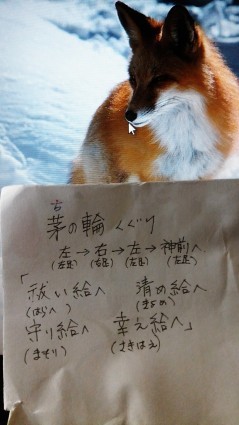 茅の輪くぐり
左→右→左→神前へ
(左足) (右足) (左足) (左足)
「祓い給へ 清め給へ
(はらへ) (きよめ)
守り給へ 幸え給へ」
(まもり) (さきはえ)